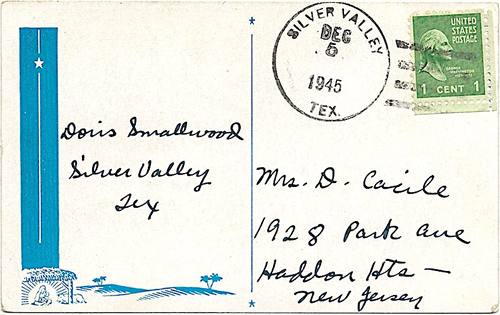 SILVER VALLEY
DEC
5
1945
TEX.
UNITED
STATES
POSTAGE
1 CENT 1
Doris Smallwood
Silver Valley
Tex
Mrs. D. Cacile
1928 Park ave
Haddon Hts —
New Jersey